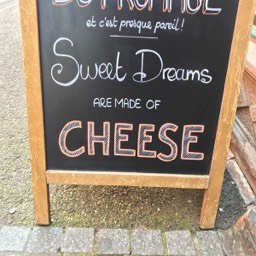 DU FROMAGE
et c'est presque pareil!
Sweet Dreams
ARE MADE OF
CHEESE